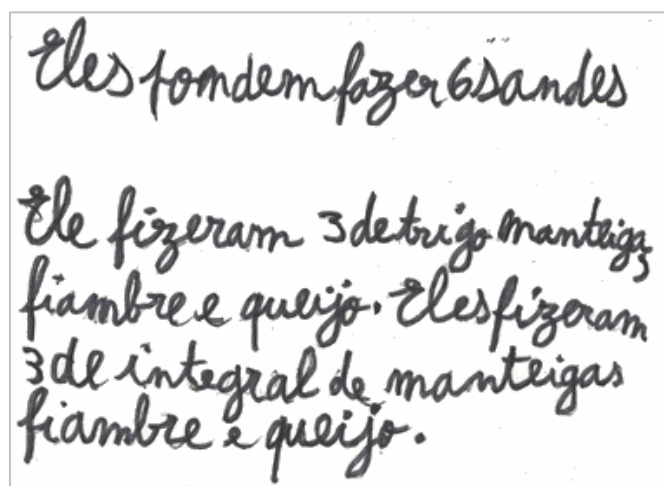 Eles pomdem fazer 6 sandes
Ele fizeram 3 de trigo manteiga,
fiambre e queijo. Eles fizeram
3 de integral de manteigas
fiambre e queijo.